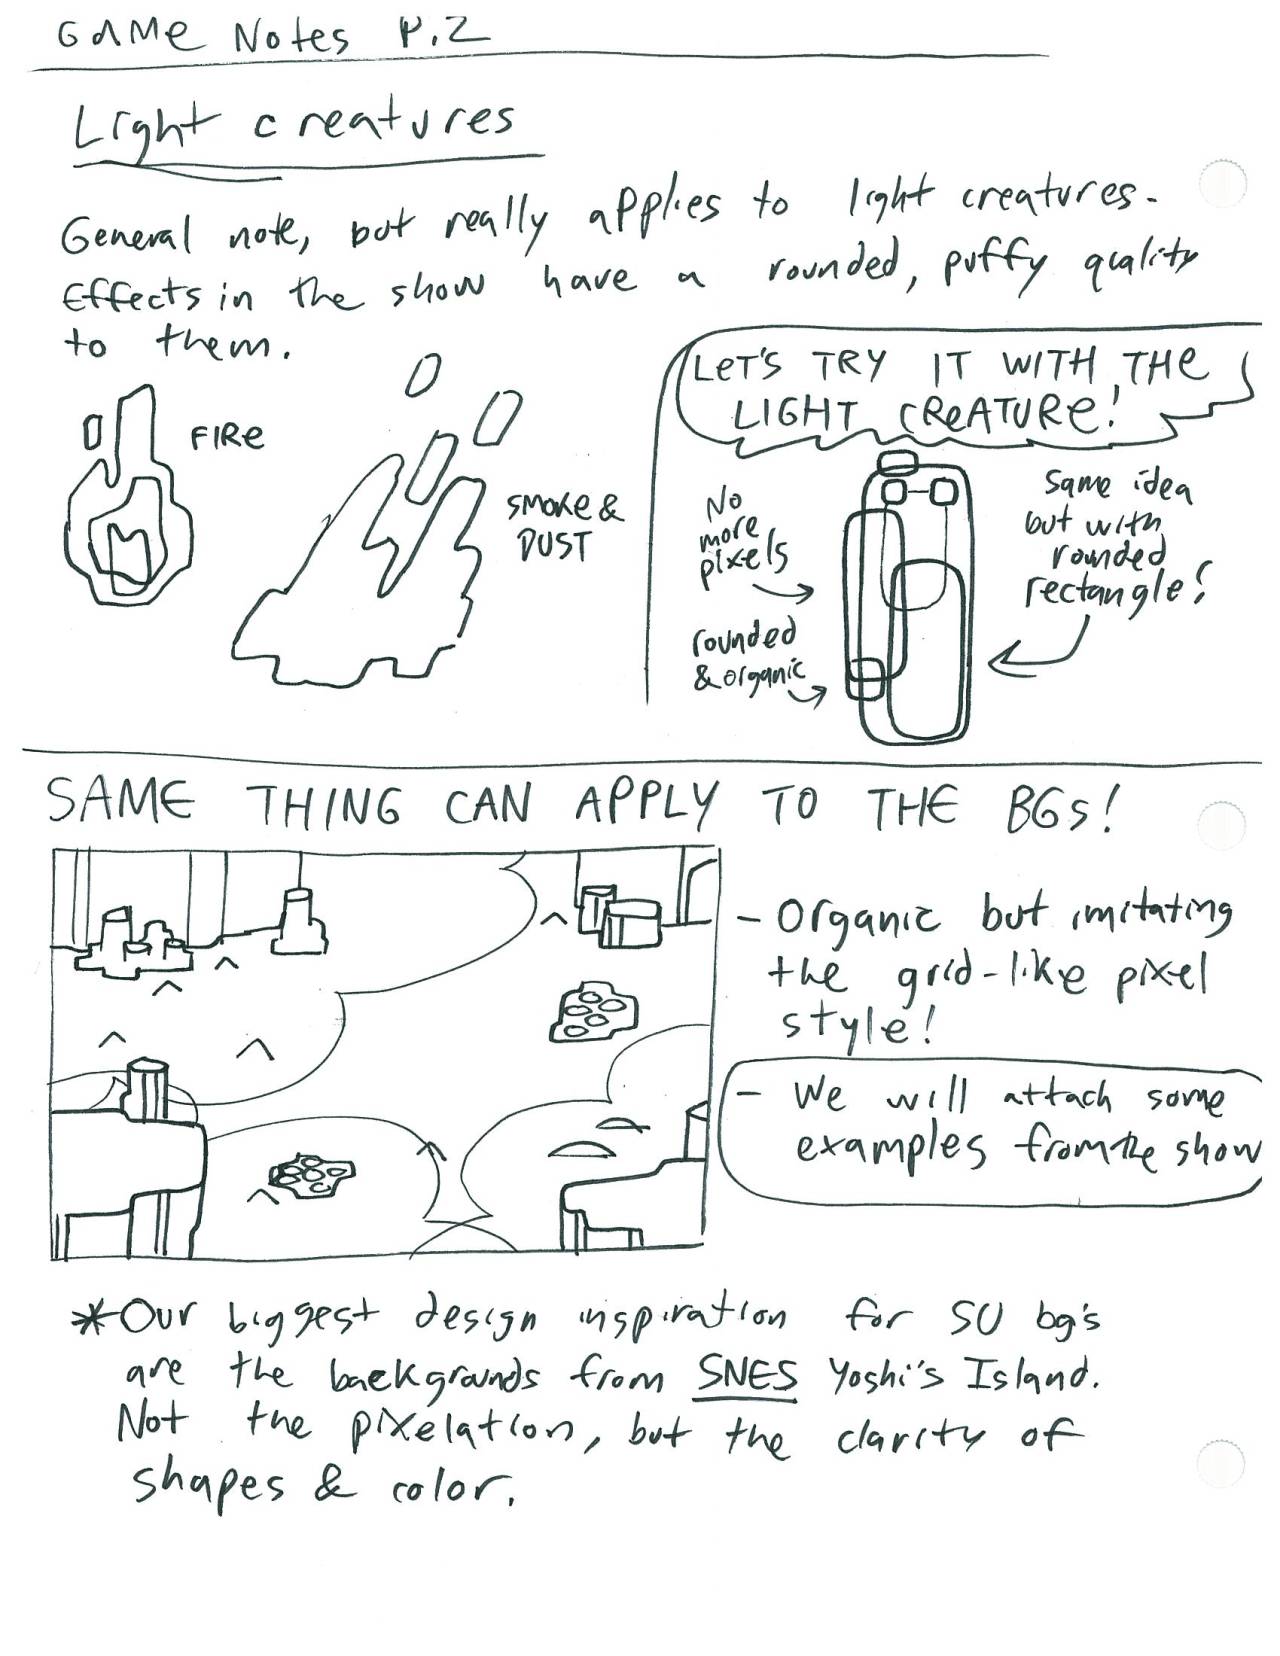 GAMe Notes P.2
Light creatures
General note, but really applies to light creatures.
Effects in the show have a rounded, puffy quality
to them.
FIRe
SMOKe &
DUST
LeT'S TRY IT WITH THe
LIGHT CReATURe!
No
more
pixels
rounded
& organic
Same idea
but with
rounded
rectangle!
SAME THING CAN APPLY TO THE BGs!
- Organic but imitating
the grid-like pixel
style!
- We will attach some
examples from the show
*Our biggest design inspiration for SU bg's
are the backgrounds from SNES Yoshi's Island.
Not the pixelation, but the clarity of
shapes & color.